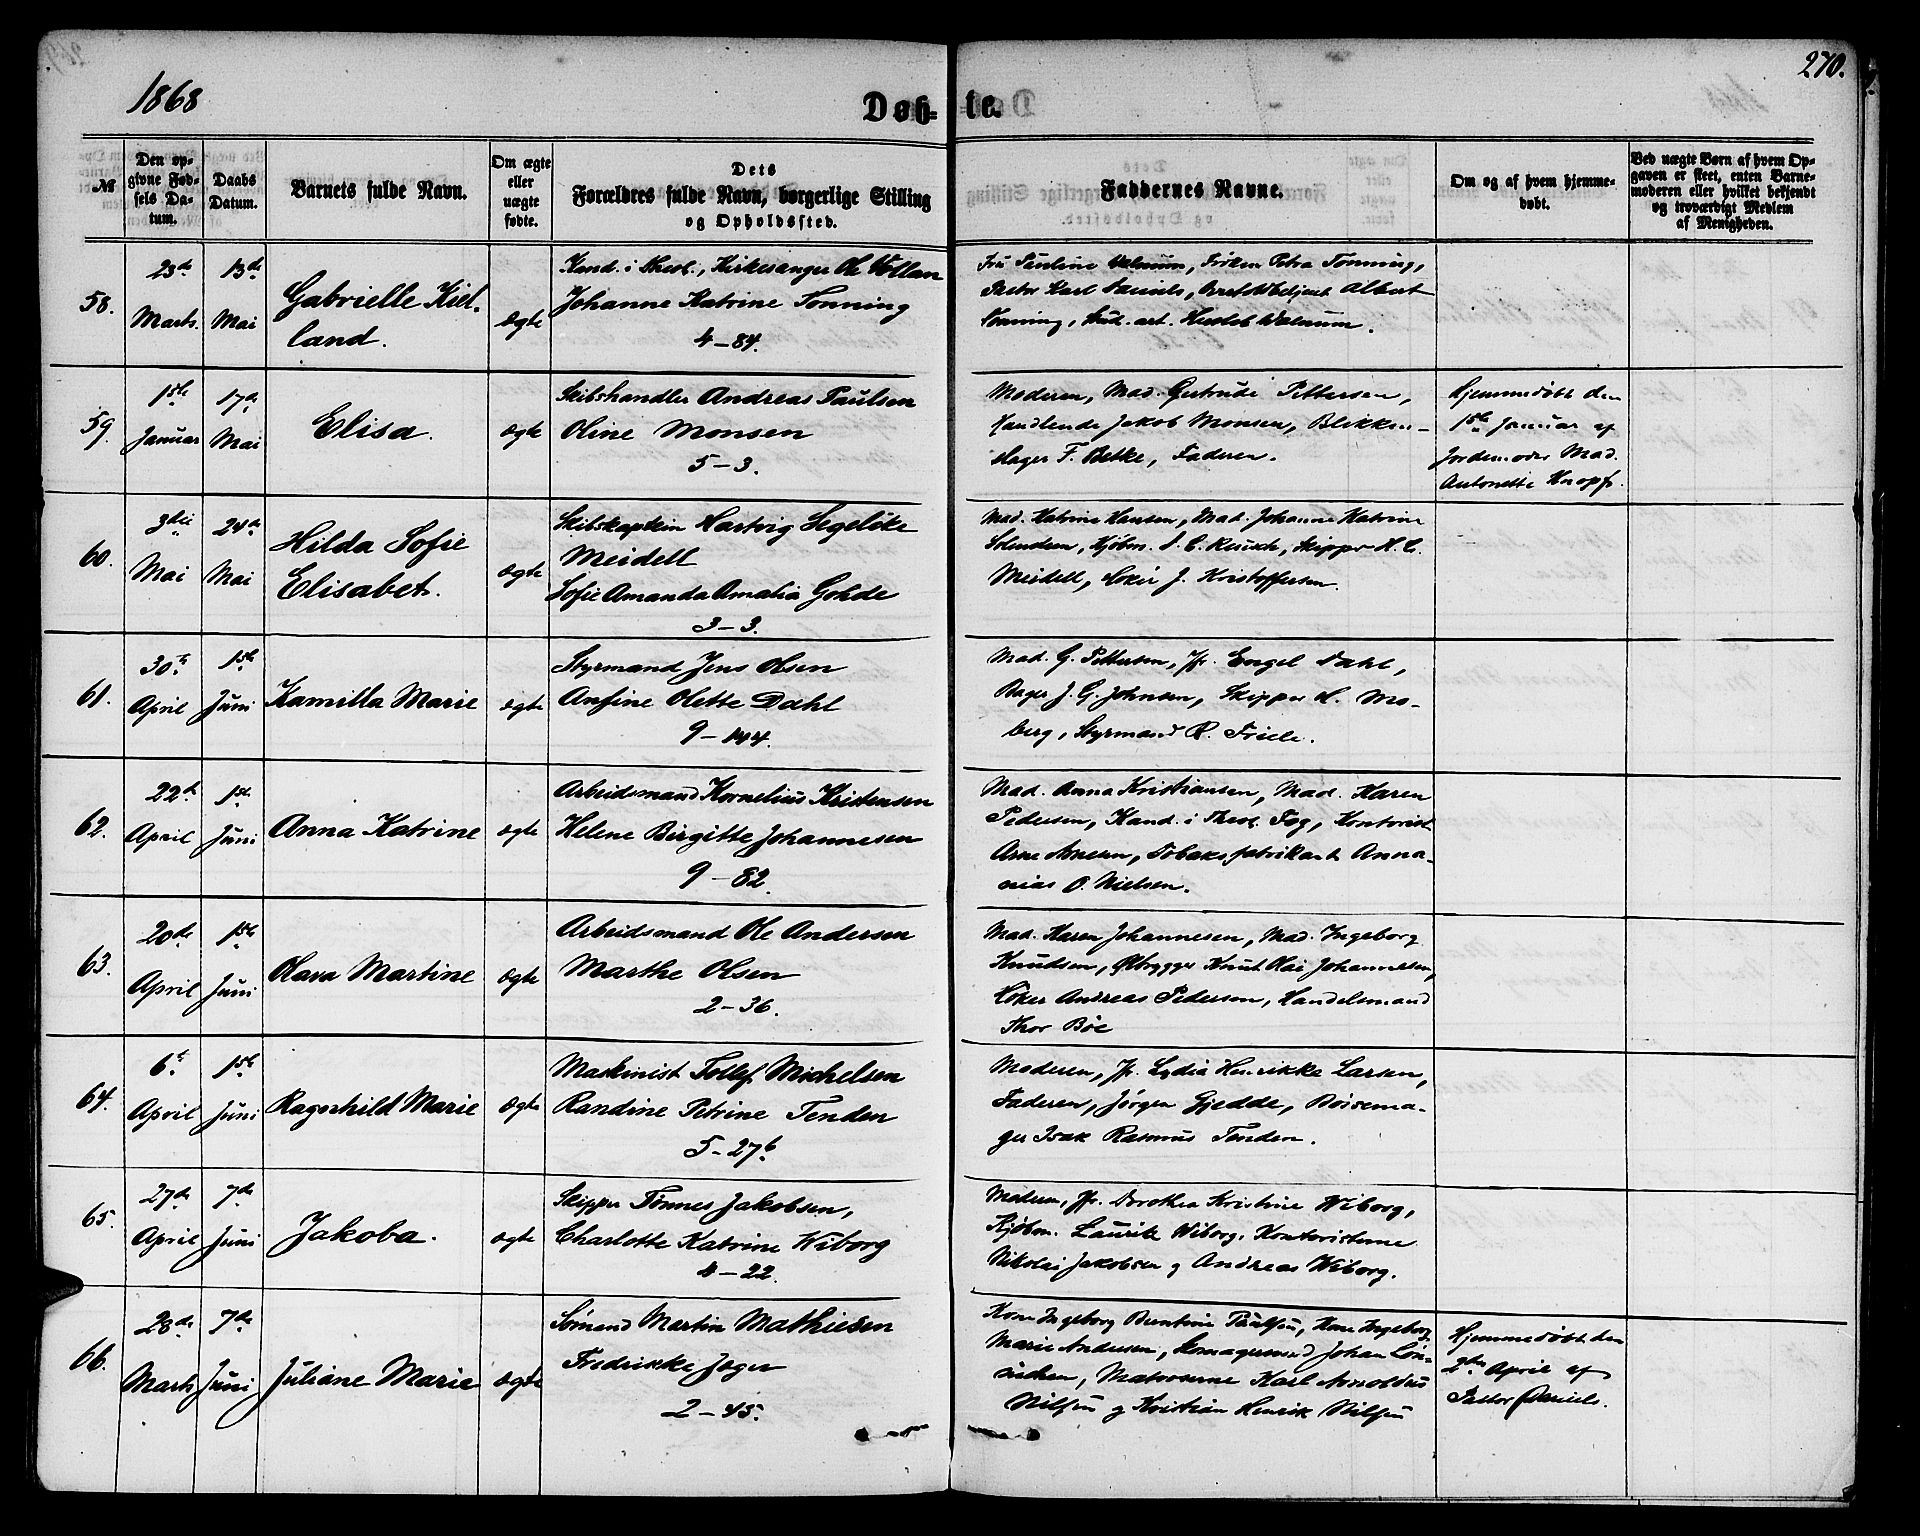 1868
270.
Døb- te.
№
Den op-
givne Fød-
sels Da-
tum.
Daabs
Datum.
Barnets fulde Navn.
Om ægte
eller
uægte
fødte.
Dets
Forældres fulde Navn, borgerlige Stilling
og Opholdssted.
Faddernes Navne.
Om og af hvem hjemme-
døbt.
Ved uægte Børn af hvem Op-
gaven er skeet, enten Barne-
moderen eller hvilket bekjendt
og troværdigt Medlem
af Menigheden.
58.
23de
Marts.
13de
Mai
Gabrielle Kiel-
land.
Ægte
Kand. i Theol., Kirkesanger Ole Vollan
Johanne Katrine Tonning
4-84.
Fru Pauline Walnum, Frøken Petra Tonning,
Pastor Karl Daniels, Albert
Tonning, Stud. art. Walnum.
59.
1ste
Januar
17de
Mai
Elisa.
Ægte
Skibshandler Andreas Paulsen
Oline Monsen
5-3.
Moderen, Mad. Gertrude Pettersen,
Handlende Jakob Monsen, Blikken-
slager F. Betke, Faderen.
Hjemmedøbt den
1ste Januar af
Jordemoder Mad.
Antonette Knopf.
60.
3die
Mai
24de
Mai
Hilda Sofie
Elisabet.
Ægte
Skibskaptein Hartvig Segelcke
Meidell
Sofie Amanda Amalia Gohde
3-3.
Mad. Katrine Hansen, Mad. Johanne Katrine
Kjøbm. J. C. Reusch, Skipper H. C.
Meidell, Høker J. Kristoffersen.
61.
30te
April
1ste
Juni
Kamilla Marie
Ægte
Styrmand Jens Olsen
Anfine Olette Dahl
9-144.
Mad. G. Pettersen, Jfr. Engel Dahl,
Bager J. G. Johnsen, Skipper H. Mo-
berg, Styrmand R. Friele.
62.
22de
April
1ste
Juni
Anna Katrine
Ægte
Arbeidsmand Kornelius Kristensen
Helene Birgitte Johannesen
9-82.
Mad. Anna Kristiansen, Mad. Karen
Pedersen, Kand. i Theol. Fog, Kontorist
Arne Arnesen, Tobaksfabrikant Anna-
nias O. Nielsen.
63.
20de
April
1ste
Juni
Olava Martine
Ægte
Arbeidsmand Ole Andersen
Marthe Olsen
2-36.
Mad. Karen Johannesen, Mad. Ingeborg
Knudsen, Ølbrygger Knut Olai Johannesen,
Høker Andreas Pedersen, Handelsmand
Thor Bøe
64.
6te
April
1ste
Juni
Ragnhild Marie
Ægte
Maskinist Tollef Michelsen
Randine Petrine Tenden
5-27b
Moderen, Jfr. Lydia Henrikke Larsen,
Faderen, Jørgen Gjedde, Bøssema-
ger Isak Rasmus Tenden.
65.
27de
April
7de
Juni
Jakoba.
Ægte
Skipper Tønnes Jakobsen,
Charlotte Katrine Wiborg
4-22.
Moderen, Jfr. Dorothea Kristine Wiborg,
Kjøbm. Lauritz Wiborg, Kontoristerne
Nikolai Jakobsen og Andreas Wiborg.
66.
28de
Marts
7de
Juni
Juliane Marie
Ægte
Sømand Martin Mathiesen
Fredrikke Jæger
2-45.
Kone Ingeborg Berntine Paulsen, Kone Ingeborg
Marie Andersen, Johan Løn-
nichen, Matroserne Karl Arnoldus
Nilsen og Kristian Henrik Nilsen
Hjemmedøbt den
2den April af
Pastor Daniels.